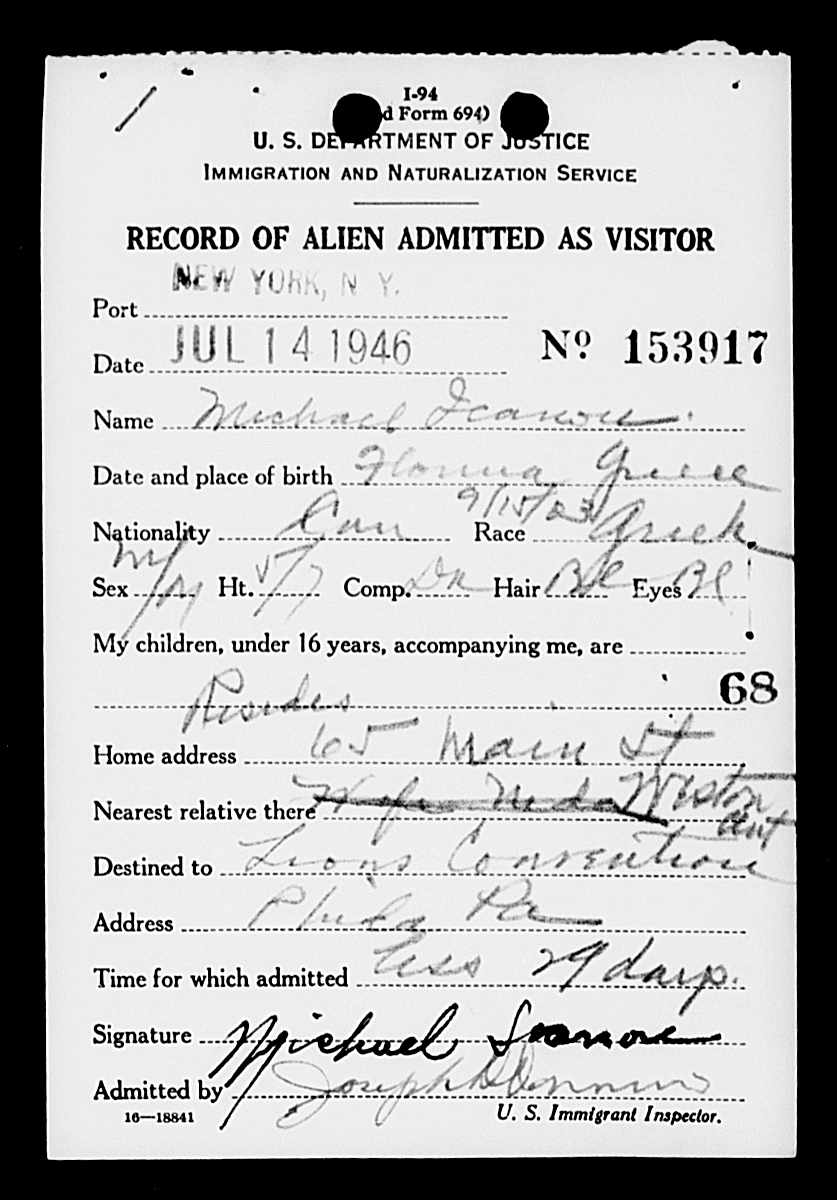 I-94
d Form 694)
U. S. DEPARTMENT OF JUSTICE
IMMIGRATION AND NATURALIZATION SERVICE
RECORD OF ALIEN ADMITTED AS VISITOR
NEW YORK, N Y.
Port
Date JUL 14 1946 No 153917
Name Michael
Date and place of birth Florina Greece
9/15/03
Nationality Can Race Greek
Sex M Ht. 5/7 Comp. Dk Hair Bl Eyes Bl
My children, under 16 years, accompanying me, are
68
Resides
Home address 65 Main St
Weston
Nearest relative there Wife
Ont
Destined to Lions Convention
Address Phila Pa
Time for which admitted less 29 days.
Signature Michael
Admitted by Joseph
16—18841 U. S. Immigrant Inspector.